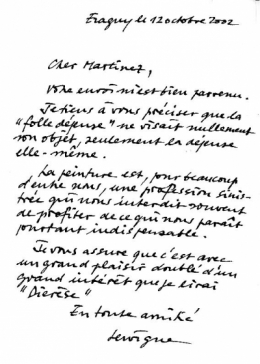 Eragny le 12 octobre 2002
Cher Martinez,
votre envoi m'est bien parvenu.
Je tiens à vous préciser que la
"folle dépense" ne visait nullement
son objet, seulement la dépense
elle-même.
La peinture est, pour beaucoup
d'entre nous, une profession sinis-
trée qui nous interdit souvent
de profiter de ce qui nous paraît
pourtant indispensable.
Je vous assure que c'est avec
un grand plaisir doublé d'un
grand intérêt que je lirai
"Diérèse"
En toute amitié